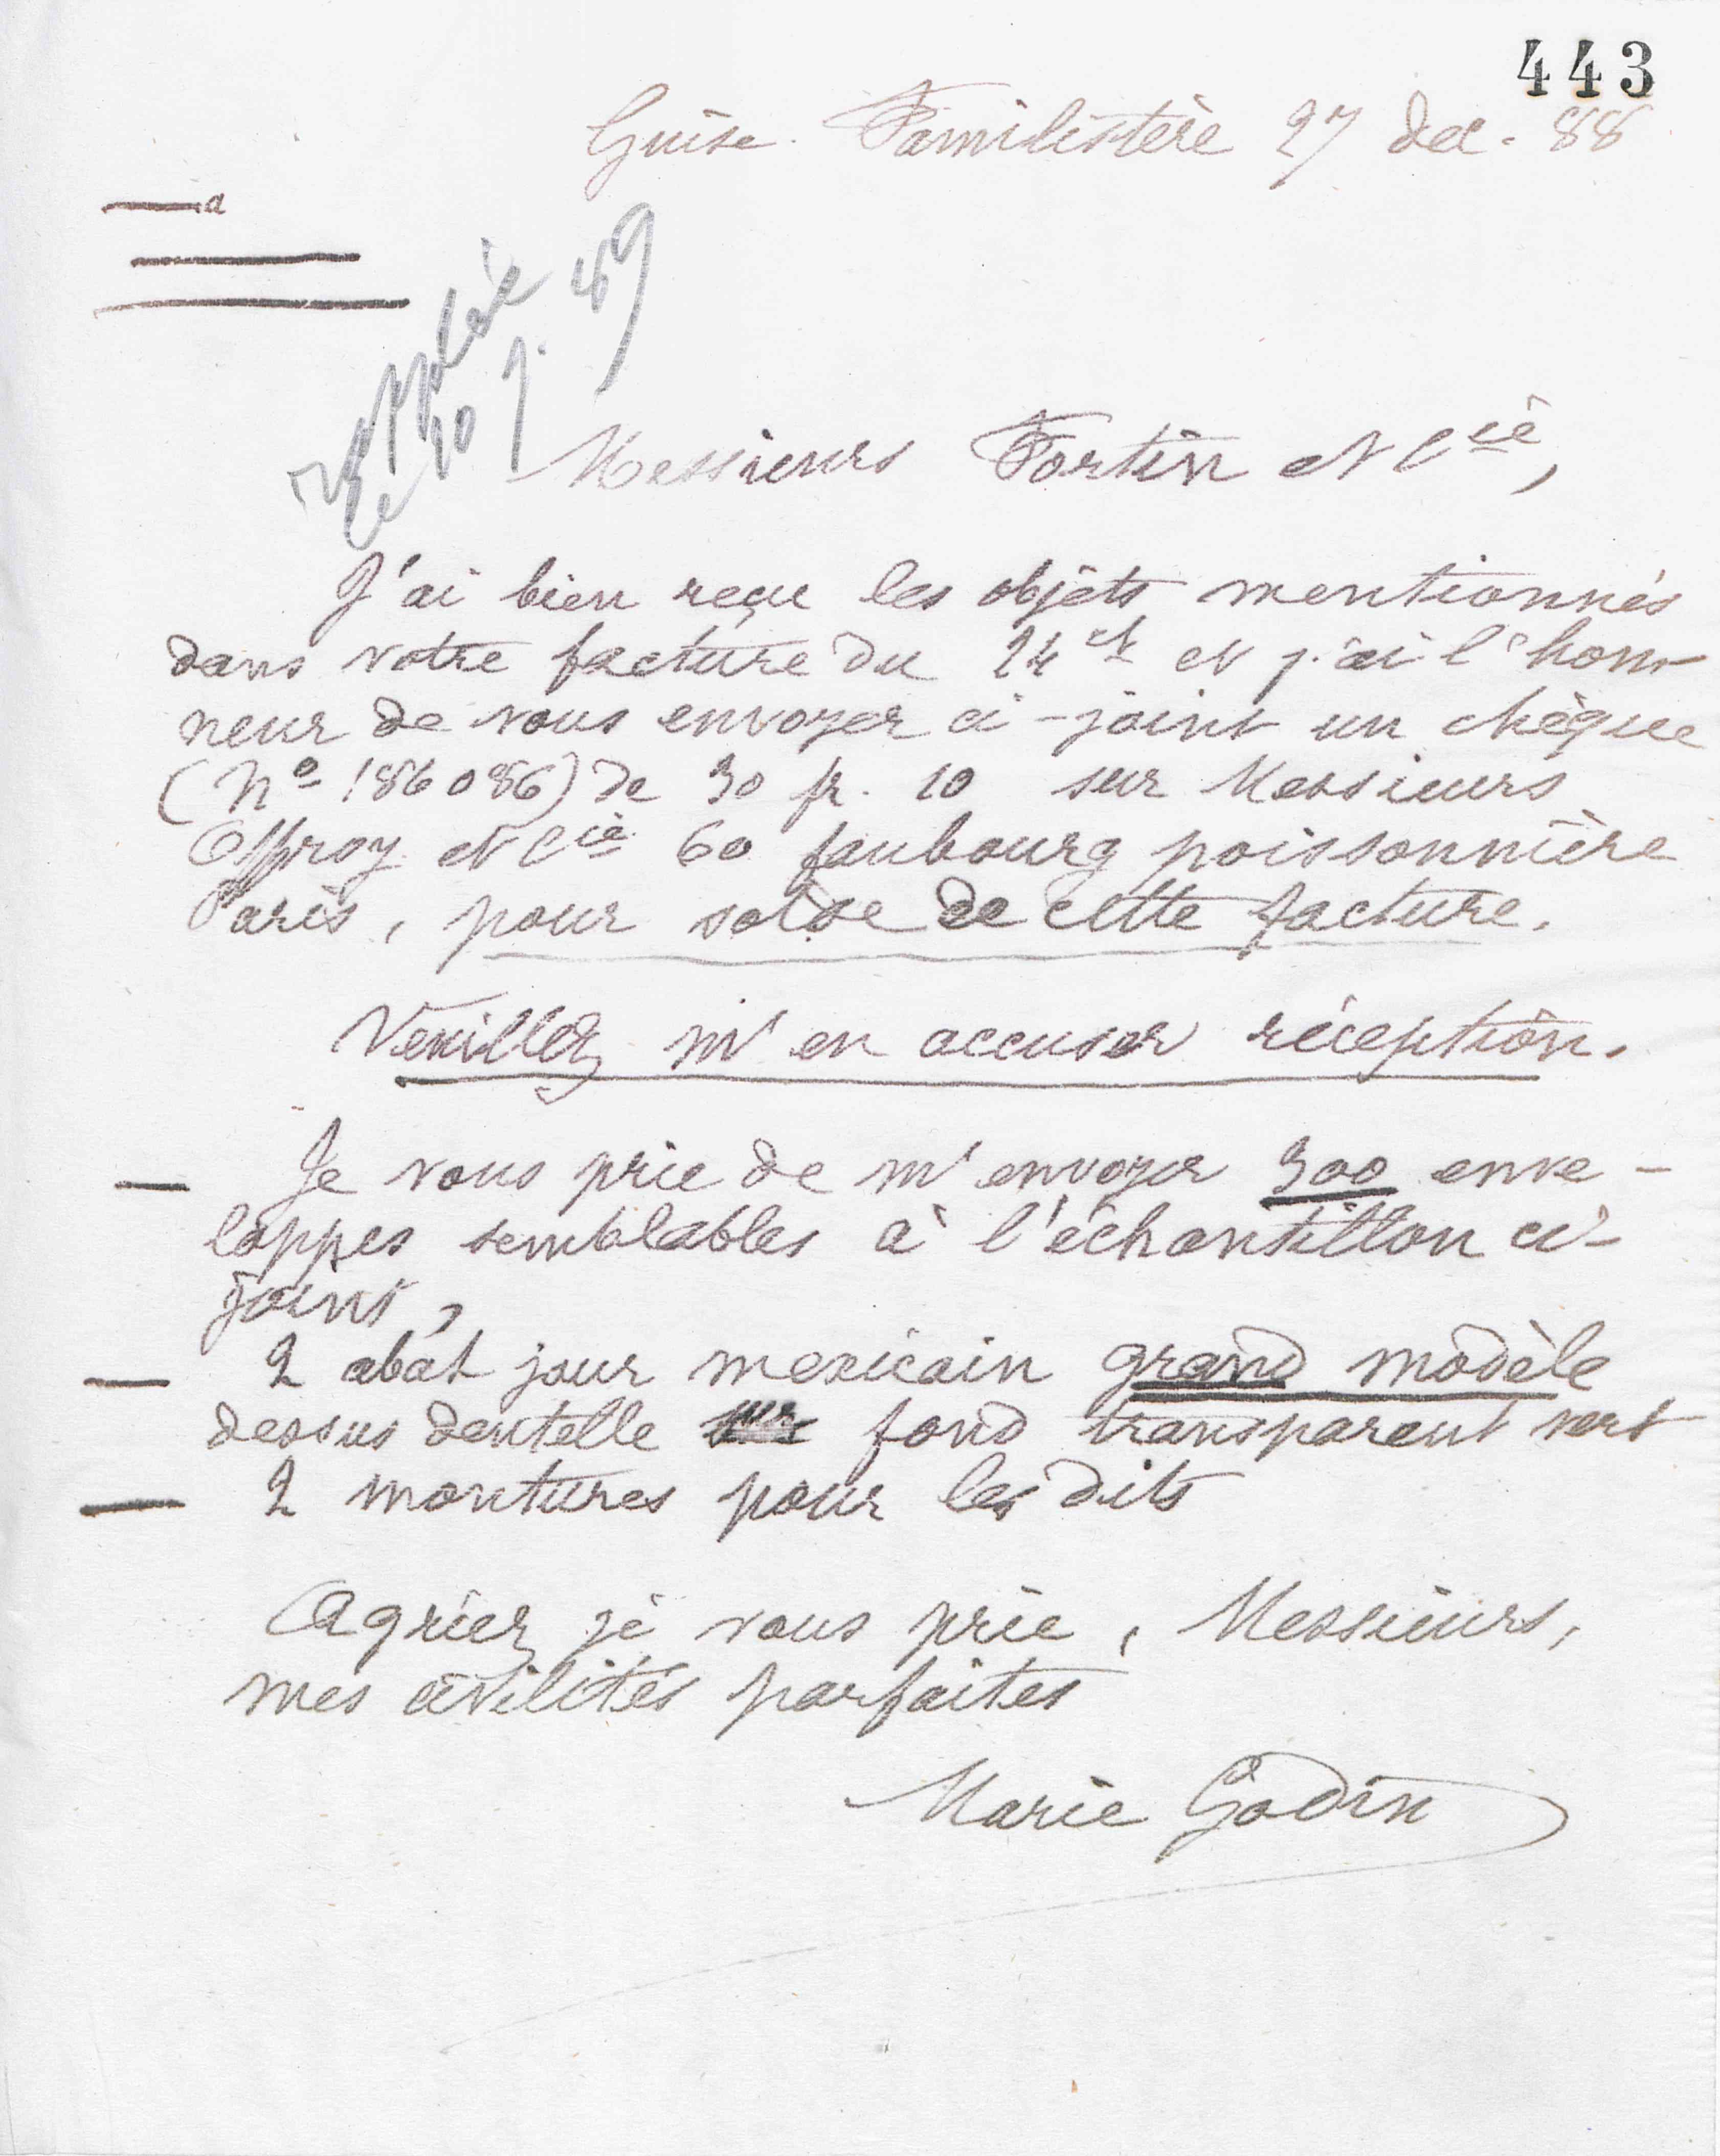 443
Guise. Familistère 27 dec. 88
Messieurs Fortin et Cie,
J'ai bien reçu les objets mentionnés
dans votre facture du 24 ct et j'ai l'hon-
neur de vous envoyer ci-joint un chèque
(No 186086) de 30 fr. 10 sur Messieurs
Offroy et Cie 60 faubourg poissonnière
Paris, pour solde de cette facture.
Veuillez m'en accuser réception.
— Je vous prie de m'envoyer 300 enve-
loppes semblables à l'échantillon ci-
joint,
— 2 abat jour mexicain grand modèle
dessus dentelle sur fond transparent vert
— 2 montures pour les dits
Agréez, je vous prie, Messieurs,
mes civilités parfaites
Marie Godin